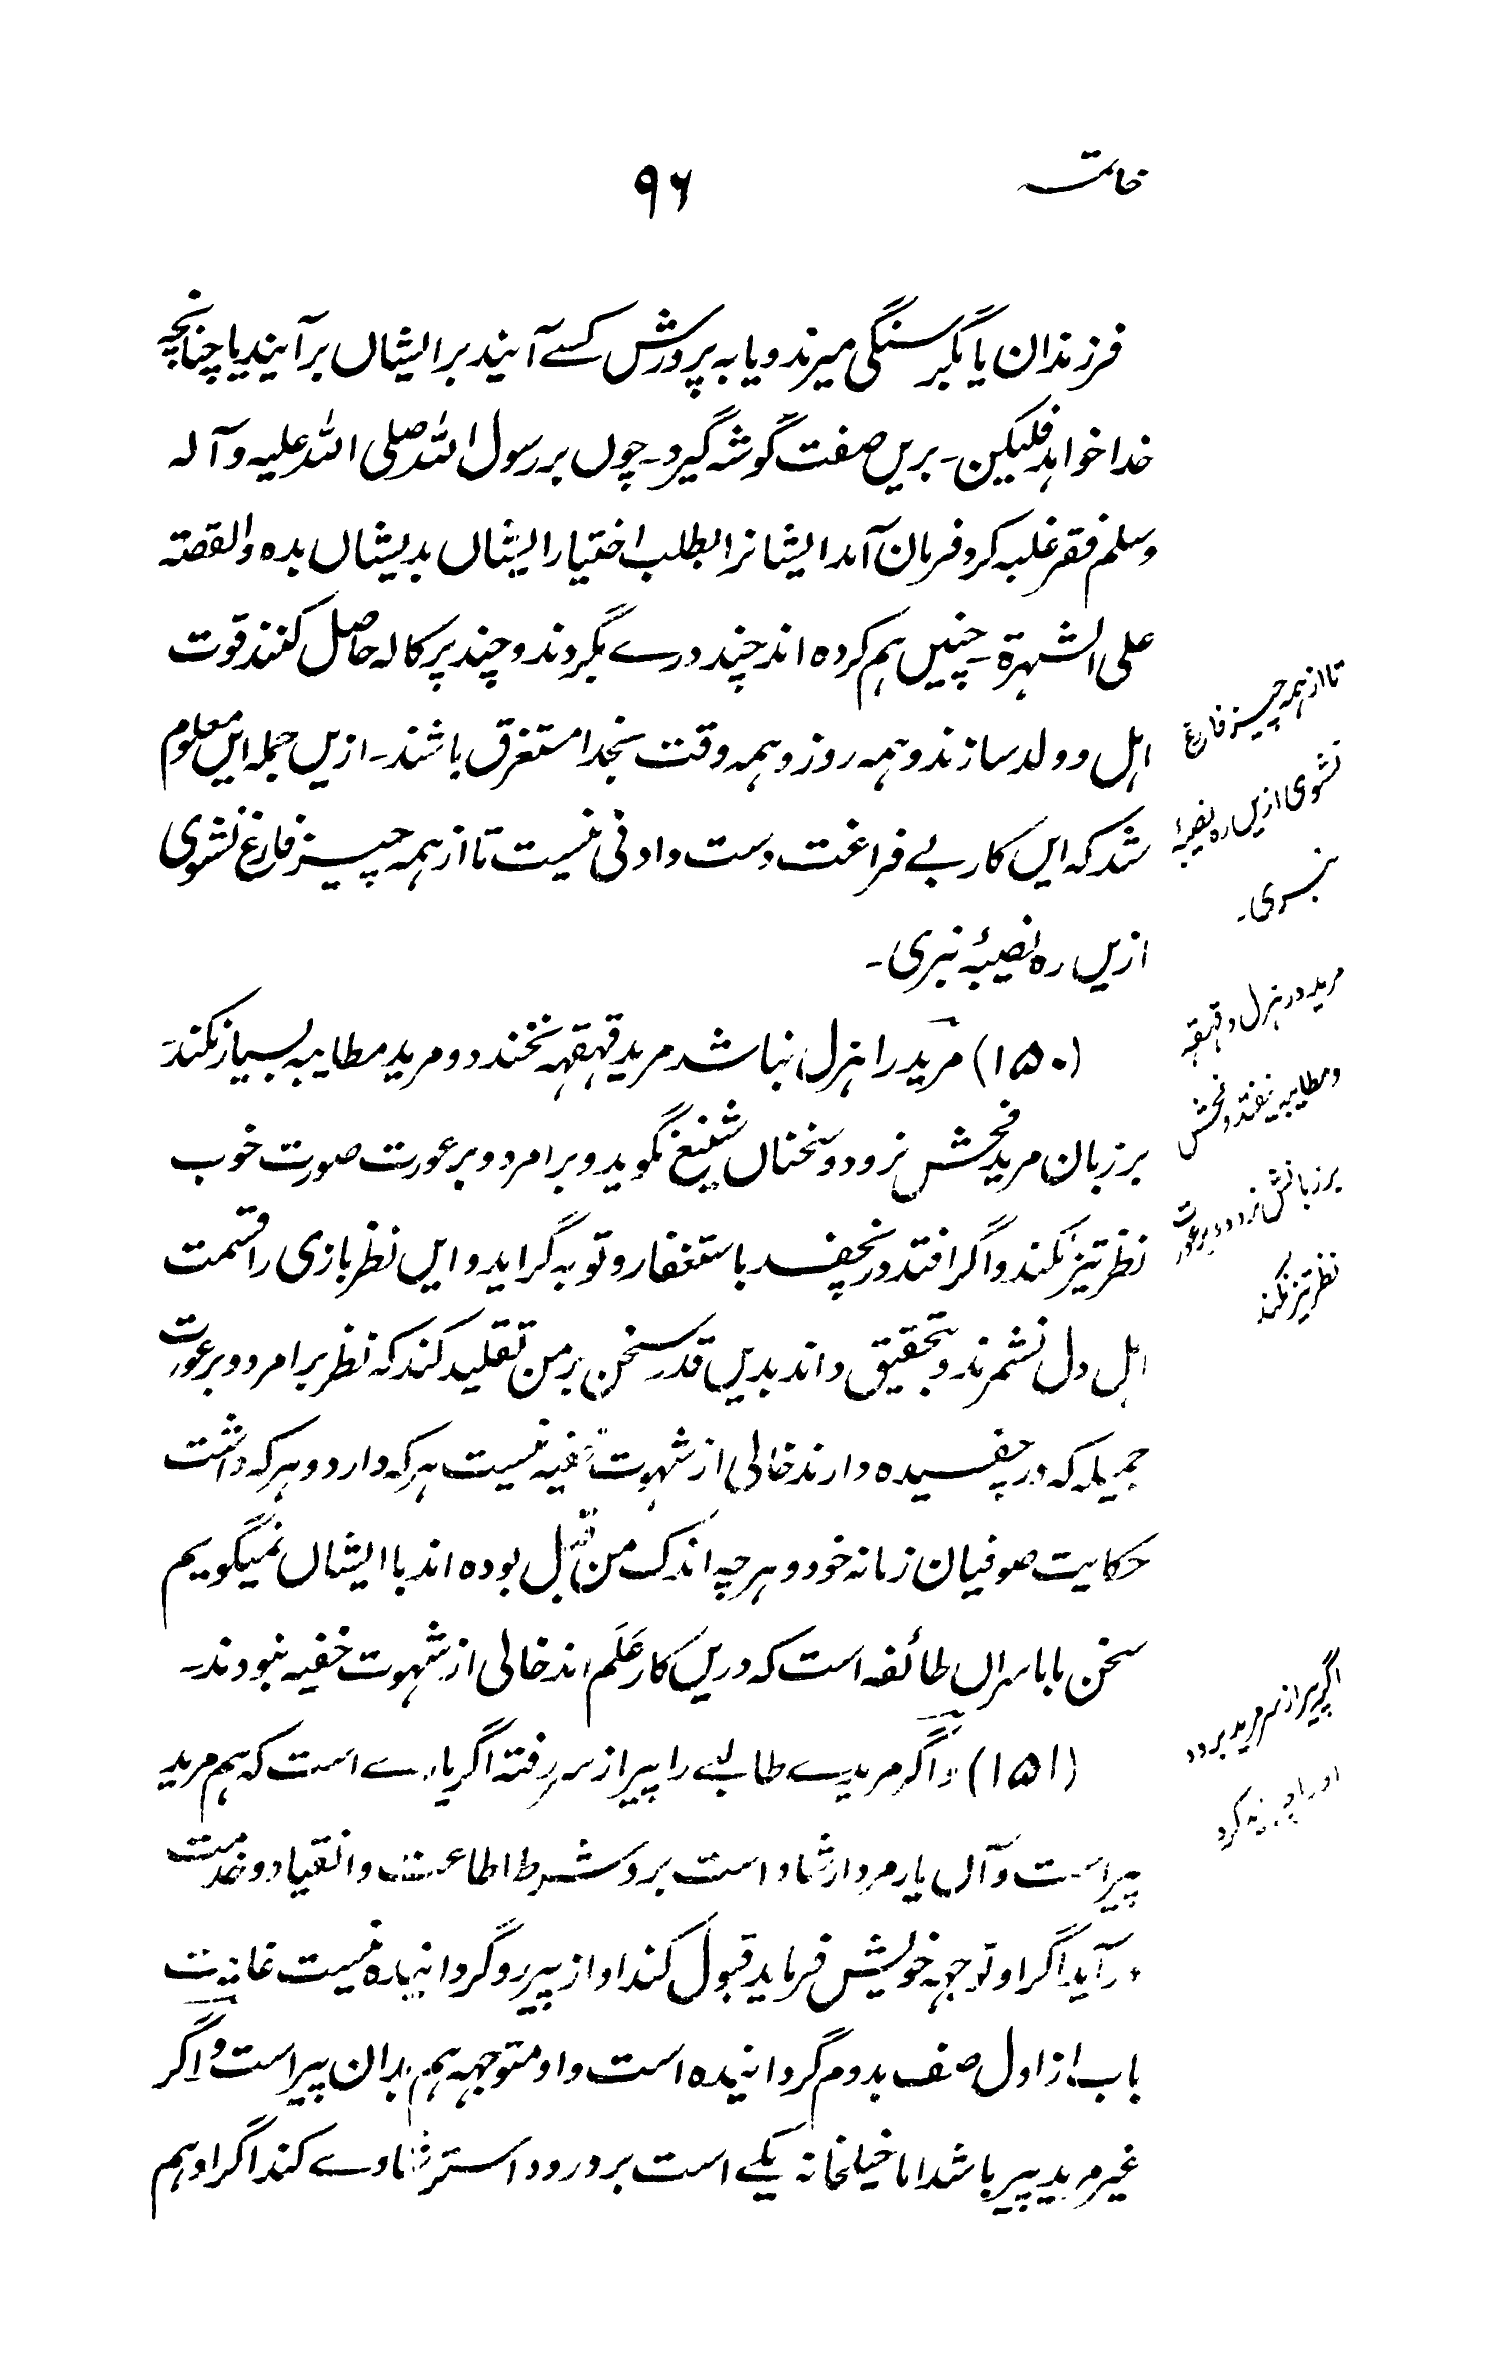 خاتمہ
۹۶
فرزندان یا بگرسنگی میرند و یا بہ پرورش کسے آیند بر ایشاں برآیند یا چنانچہ
خدا خواہد فلیکن۔ بریں صفت گوشہ گیرد۔ چوں بر رسول اللہ صلی اللہ علیہ و آلہ
وسلم فقر غلبہ کرد فرمان آمد ایشانرا بطلب اختیار ایشاں بدیشاں بدہ والقصتہ
علی الشہرۃ۔ چنیں ہم کردہ اند چند درے بگردند و چند پرکالہ حاصل کنند قوت
اہل و ولد سازند و ہمہ روز و ہمہ وقت بخدا مستغرق باشند۔ ازیں جملہ ایں معلوم
شد کہ ایں کار بے فراغت دست دادنی نیست تا از ہمہ چیز فارغ نشوی
ازیں رہ نصیبۂ نبری۔
تا از ہمہ چیز فارغ
نشوی ازیں رہ نصیبۂ
نبری۔
(۱۵۰) مرید را ہزل نباشد مرید قہقہہ نخندد و مرید مطایبہ بسیار نکند
بر زبان مرید فحش نرود و سخنان شنیع نگوید و بر امرد و بر عورت صورت خوب
نظر تیز نکند و اگر افتد در نچفسد باستغفار و توبہ گراید و ایں نظر بازی را قسمت
اہل دل نشمرند و بتحقیق داند بدیں قدر سخن بر من تقلید کند کہ نظر بر امرد و بر عورت
جمیلہ کہ در چفسیدہ دارند خالی از شہوت خفیہ نیست ہر کہ دارد و ہر کہ داشت
حکایت صوفیان زمانہ خود و ہرچہ اندک من قبل بودہ اند با ایشاں نمیگویم
سخن با با سراں طائفہ است کہ دریں کار عَلَم اند خالی از شہوت خفیہ نبودند۔
مرید در ہزل و قہقہہ
و مطایبہ نیفتد و فحش
بر زبانش نرود و بر عورت
نظر تیز نکند
(۱۵۱) و اگر مریدے طالبے را پیر از سر رفتہ اگر یارے است کہ ہم مرید
پیر است و آں یار مرد ارشاد است برو شرط اطاعت و انقیاد و خدمت
در آید اگر او توجہہ خویش فرماید قبول کند او از پیر رو گردانیدہ نیست غایت
باب از اول صف بدوم گردانیدہ است و او متوجہہ ہم بدان پیر است و اگر
غیر مرید پیر باشد اما خیلخانہ یکے است برو رود استرشادے کند اگر او ہم
اگر پیر از سر مرید برود
او را چہ باید کرد